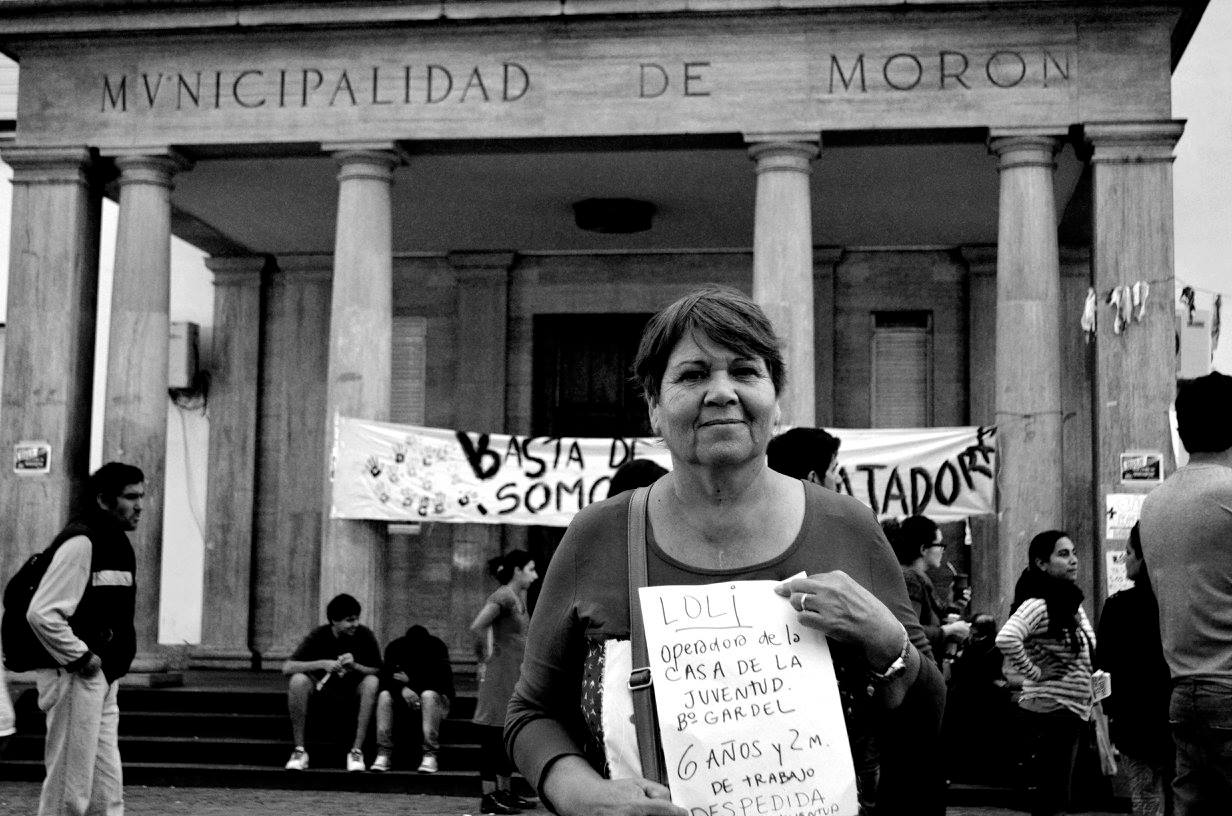 MVNICIPALIDAD DE MORON
BASTA DE
SOMO
ATADORE
LOLi
operadora de la
CASA DE LA
JUVENTUD.
Bº GARDEL
6 AÑOS y 2 M.
DE TRABAJO
DESPEDIDA